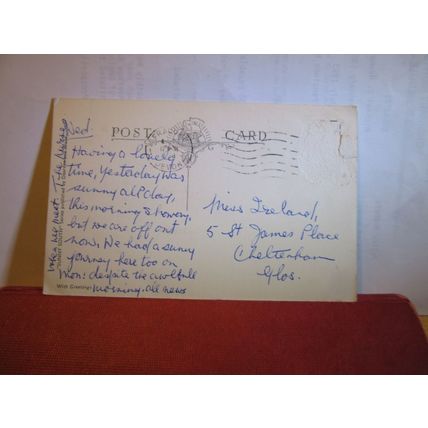 Wed
POST CARD
Having a lovely
time, yesterday was
sunny all day,
this morning showery,
but we are off out
now. We had a sunny
journey here too on
Mon: despite the awful
morning. all news
when we meet
With Greetings
Miss Ireland,
5 St James Place
Cheltenham
Glos.